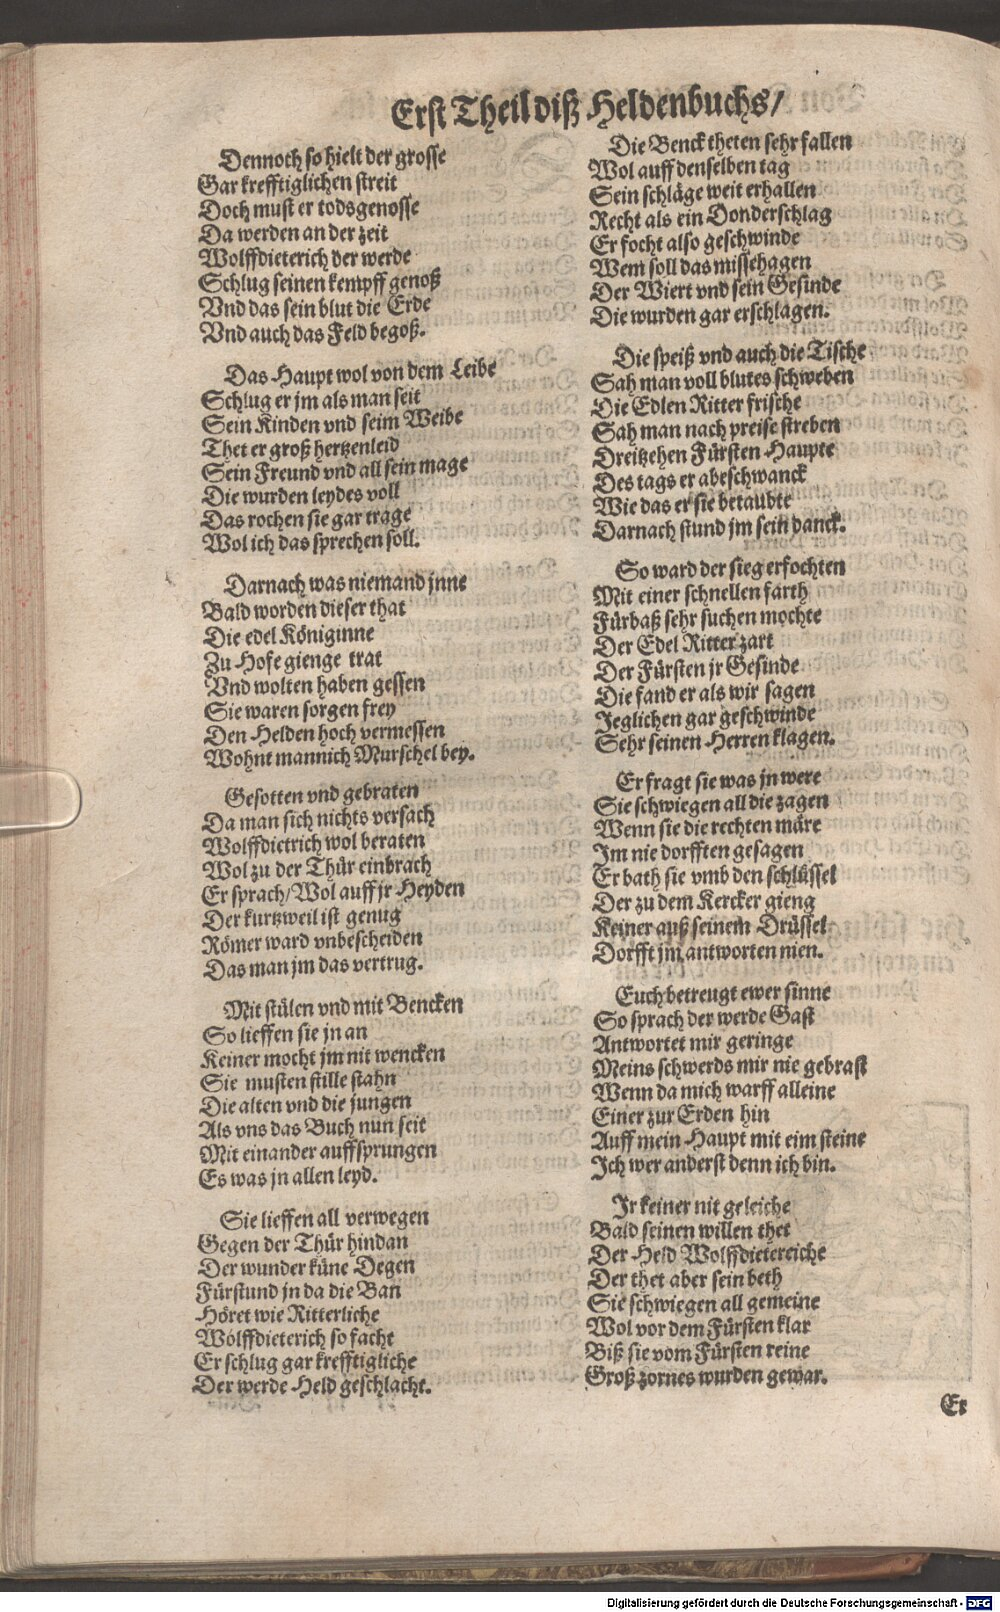 Erst Theil diß Heldenbuchs/
Dennoch so hielt der grosse
Gar krefftiglichen streit
Doch must er todsgenosse
Da werden an der zeit
Wolffdieterich der werde
Schlug seinen kempff genoß
Vnd das sein blut die Erde
Vnd auch das Feld begoß.
Das Haupt wol von dem Leibe
Schlug er jm als man seit
Sein Kinden vnd seim Weibe
Thet er groß hertzenleid
Sein Freund vnd all sein mage
Die wurden leydes voll
Das rochen sie gar trage
Wol ich das sprechen soll.
Darnach was niemand jnne
Bald worden dieser that
Die edel Königinne
Zu Hofe gienge trat
Vnd wolten haben gessen
Sie waren sorgen frey
Den Helden hoch vermessen
Wohnt mannich Murschel bey.
Gesotten vnd gebraten
Da man sich nichts versach
Wolffdietrich wol beraten
Wol zu der Thür einbrach
Er sprach/Wol auff jr Heyden
Der kurtzweil ist genug
Römer ward vnbescheiden
Das man jm das vertrug.
Mit stülen vnd mit Bencken
So lieffen sie jn an
Keiner mocht jm nit wencken
Sie musten stille stahn
Die alten vnd die jungen
Als vns das Buch nun seit
Mit einander auffsprungen
Es was jn allen leyd.
Sie lieffen all verwegen
Gegen der Thür hindan
Der wunder küne Degen
Fürstund jn da die Ban
Höret wie Ritterliche
Wolffdieterich so facht
Er schlug gar krefftigliche
Der werde Held geschlacht.
Die Benck theten sehr fallen
Wol auff denselben tag
Sein schläge weit erhallen
Recht als ein Donderschlag
Er focht also geschwinde
Wem soll das missehagen
Der Wiert vnd sein Gesinde
Die wurden gar erschlagen.
Die speiß vnd auch die Tische
Sah man voll blutes schweben
Die Edlen Ritter frische
Sah man nach preise streben
Dreitzehen Fürsten Haupte
Des tags er abeschwanck
Wie das er sie betaubte
Darnach stund jm sein danck.
So ward der sieg erfochten
Mit einer schnellen farth
Fürbaß sehr suchen mochte
Der Edel Ritter zart
Der Fürsten jr Gesinde
Die fand er als wir sagen
Jeglichen gar geschwinde
Sehr seinen Herren klagen.
Er fragt sie was jn were
Sie schwiegen all die zagen
Wenn sie die rechten märe
Im nie dorfften gesagen
Er bath sie vmb den schlüssel
Der zu dem Kercker gieng
Keiner auß seinem Drüssel
Dorfft jm antworten nien.
Euch betreugt ewer sinne
So sprach der werde Gast
Antwortet mir geringe
Meins schwerds mir nie gebrast
Wenn da mich warff alleine
Einer zur Erden hin
Auff mein Haupt mit eim steine
Ich wer anderst denn ich bin.
Jr keiner nit geleiche
Bald seinen willen thet
Der Held Wolffdietereiche
Der thet aber sein beth
Sie schwiegen all gemeine
Wol vor dem Fürsten klar
Biß sie vom Fürsten reine
Groß zornes wurden gewar.
Er
Digitalisierung gefördert durch die Deutsche Forschungsgemeinschaft - DFG